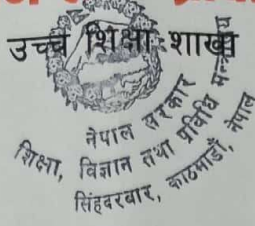 उच्च शिक्षा शाखा
नेपाल सरकार
शिक्षा, विज्ञान तथा प्रविधि मन्त्रालय
सिंहदरबार, काठमाडौँ, नेपाल